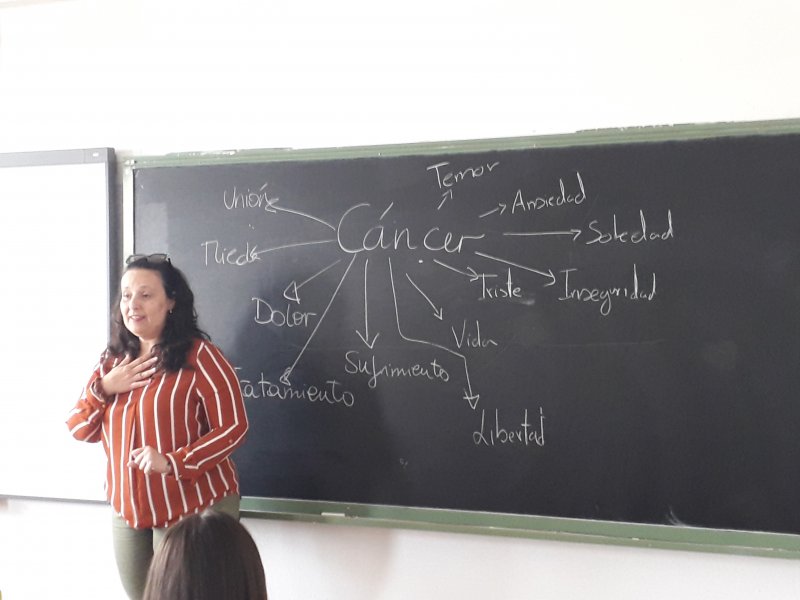 Temor
Unión
Ansiedad
Cáncer
Soledad
Miedo
Triste
Inseguridad
Dolor
Vida
Sufrimiento
Tratamiento
Libertad